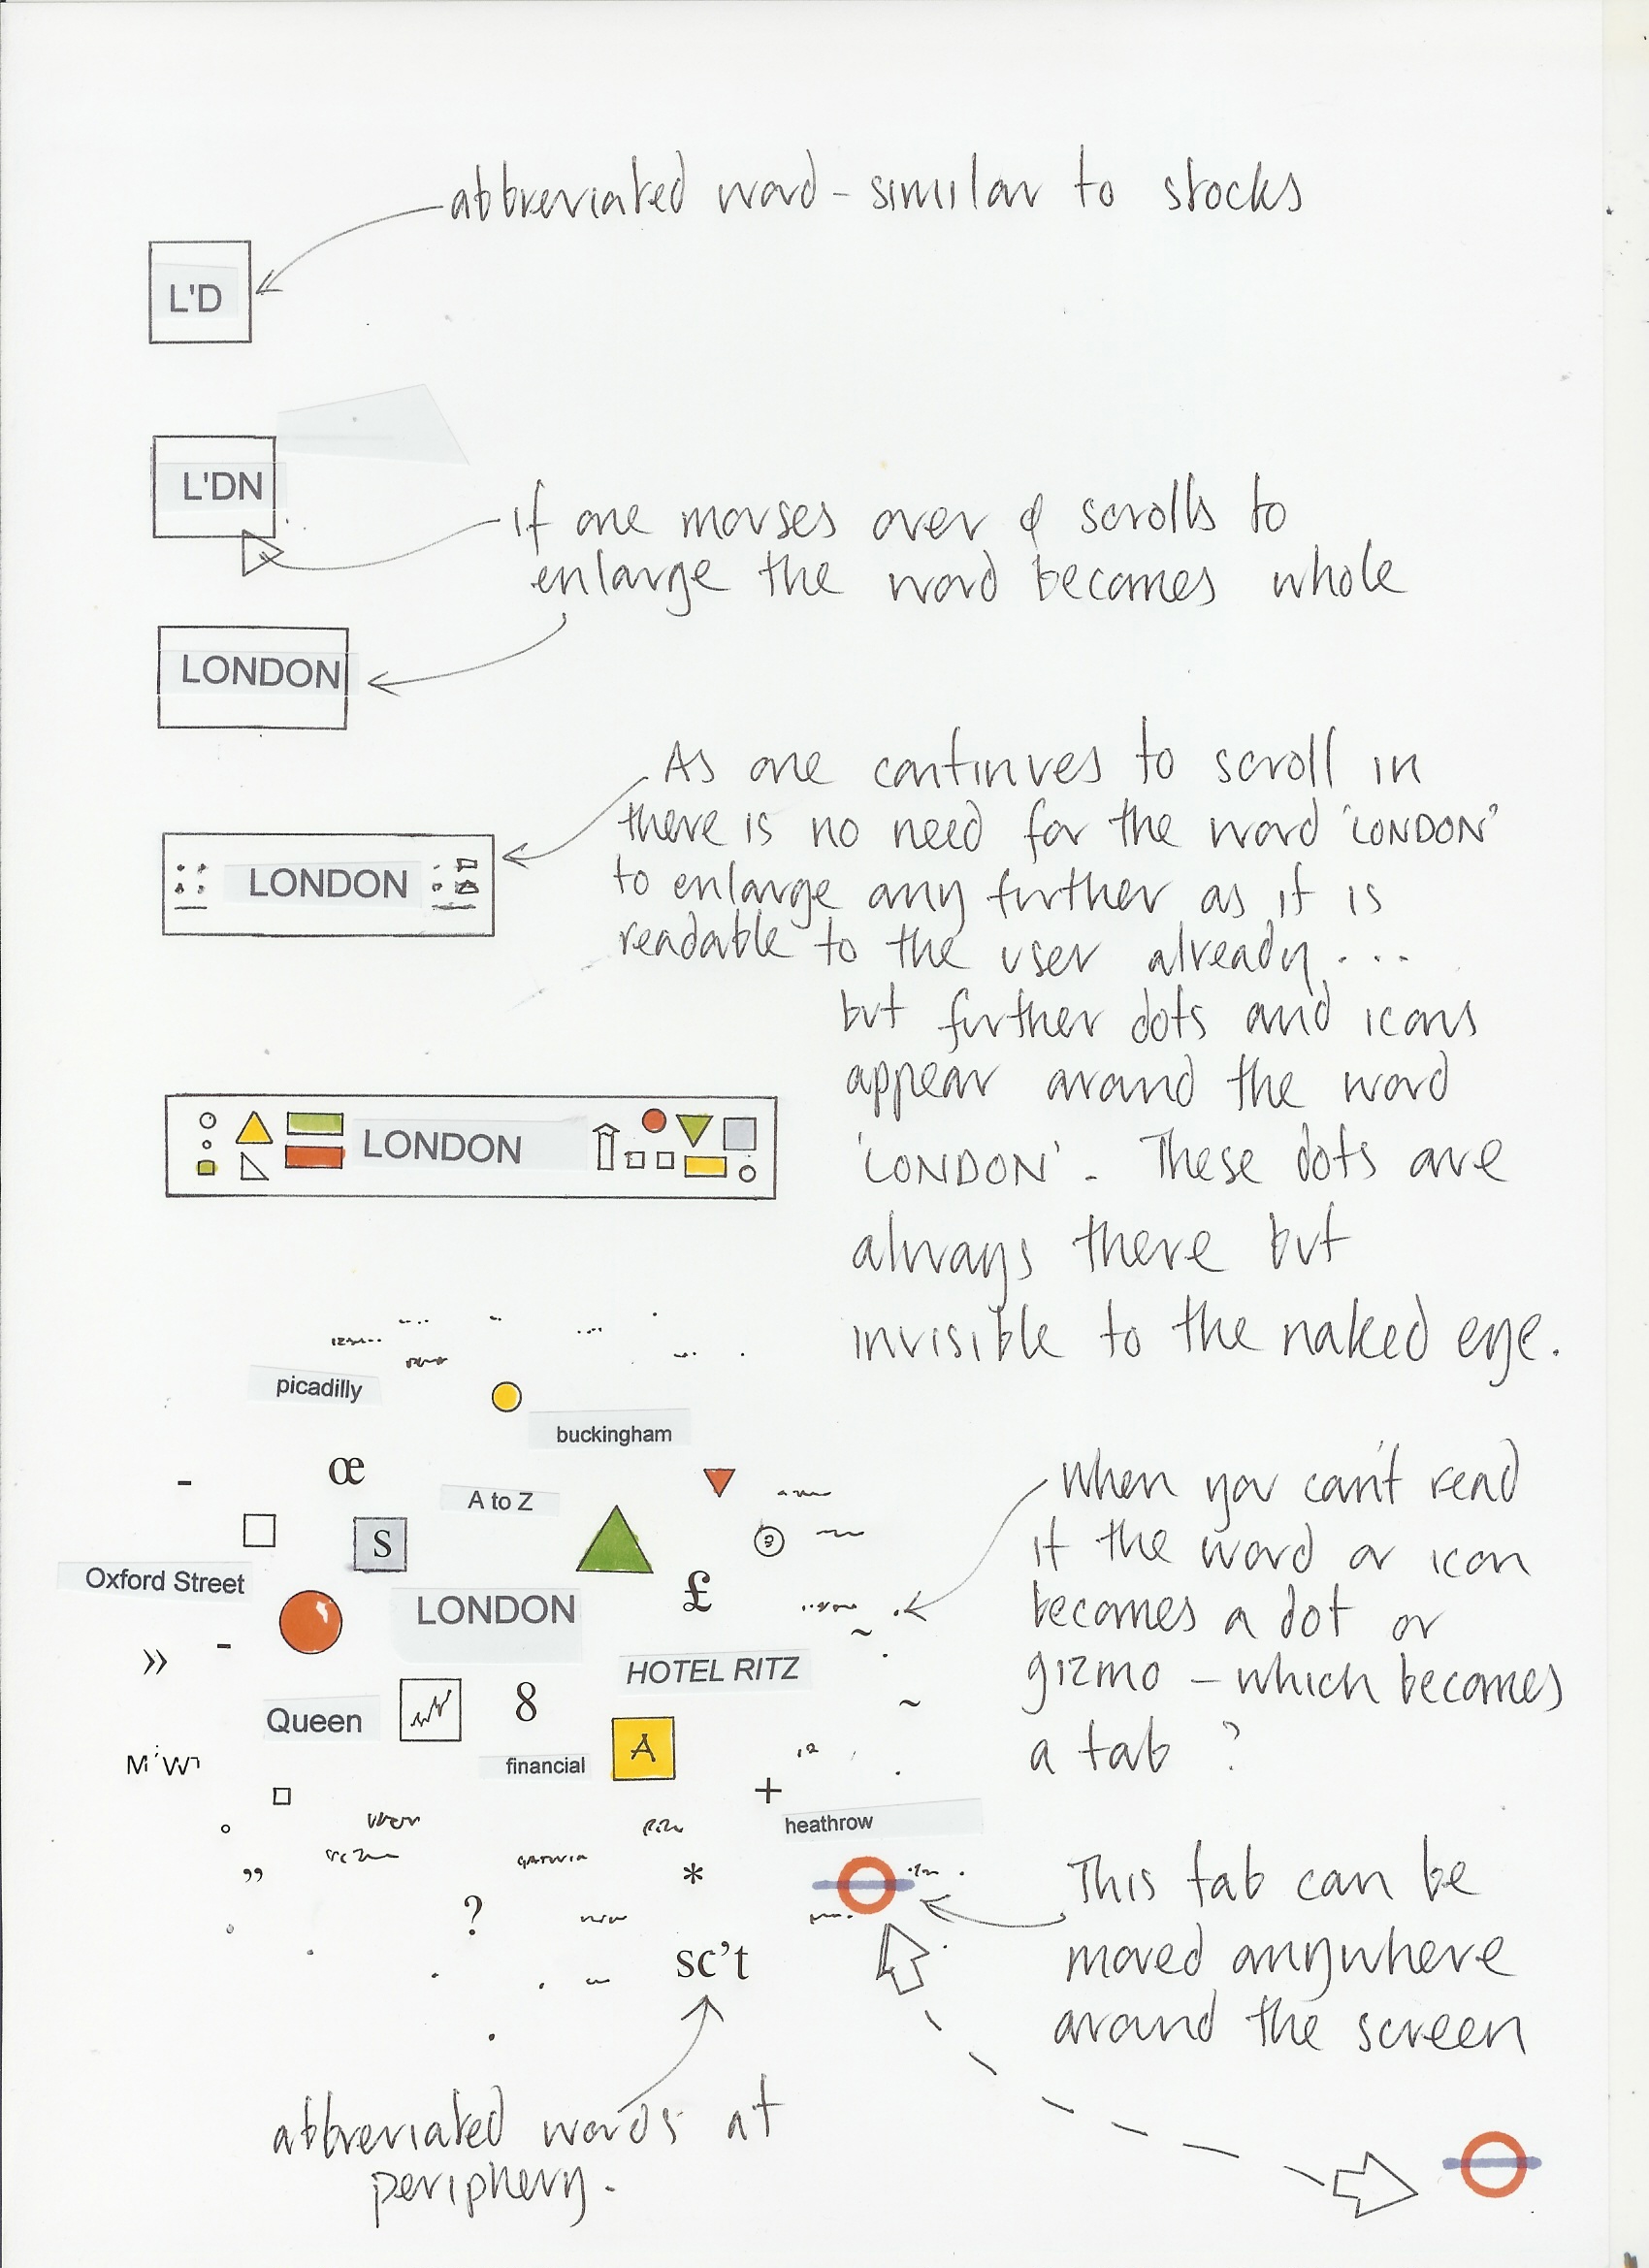 abbreviated word - similar to stocks
L'D
L'DN
if one mouses over & scrolls to
enlarge the word becomes whole
LONDON
As one continues to scroll in
there is no need for the word 'LONDON'
to enlarge any further as it is
readable to the user already...
LONDON
but further dots and icons
appear around the word
LONDON
'LONDON'. These dots are
always there but
invisible to the naked eye.
picadilly
buckingham
œ
A to Z
S
Oxford Street
LONDON
£
»
HOTEL RITZ
Queen
8
A
financial
+
heathrow
”
*
?
sc't
when you can't read
it the word or icon
becomes a dot or
gizmo - which becomes
a tab ?
This tab can be
moved anywhere
around the screen
abbreviated words at
periphery.